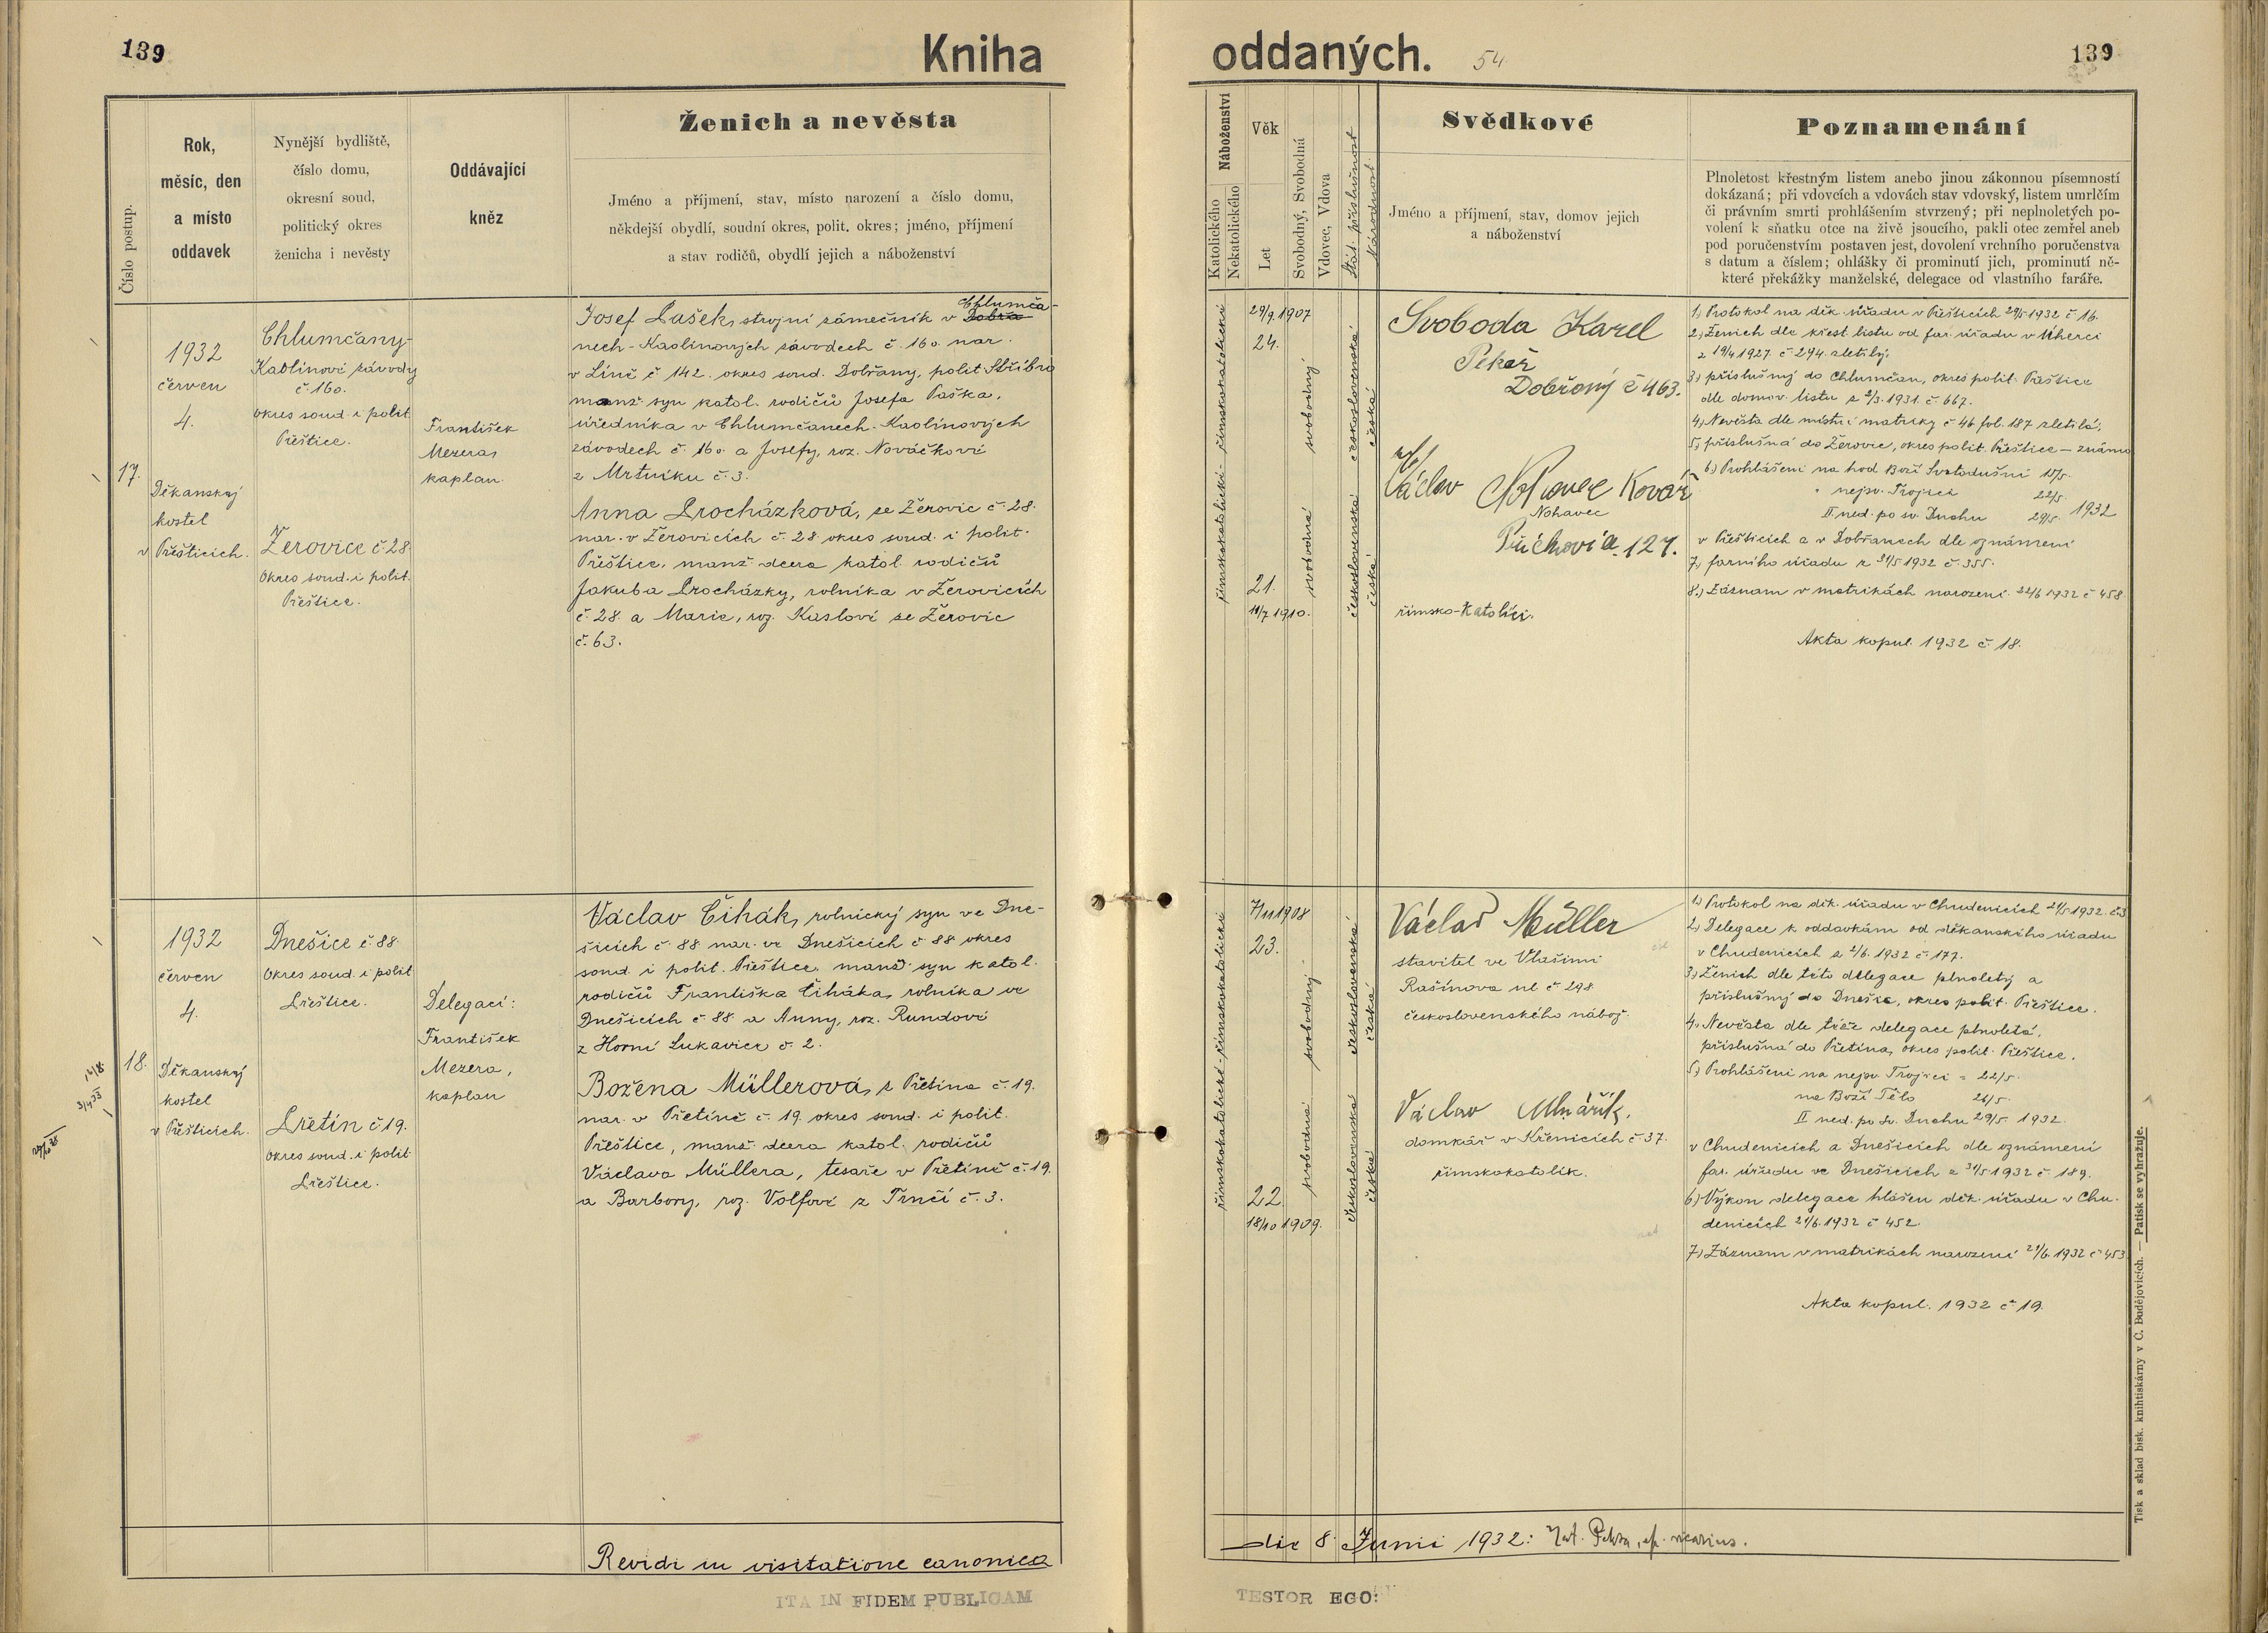 139
Kniha
oddaných.
54
139
Číslo postup.
Rok,
měsíc, den
a místo
oddavek
Nynější bydliště,
číslo domu,
okresní soud,
politický okres
ženicha i nevěsty
Oddávající
kněz
Ženich a nevěsta
Jméno a příjmení, stav, místo narození a číslo domu,
někdejší obydlí, soudní okres, polit. okres; jméno, příjmení
a stav rodičů, obydlí jejich a náboženství
Náboženství
Katolického
Nekatolického
Věk
Let
Svobodný, Svobodná
Vdovec, Vdova
Stát. příslušnost
Národnost
Svědkové
Jméno a příjmení, stav, domov jejich
a náboženství
Poznamenání
Plnoletost křestným listem anebo jinou zákonnou písemností
dokázaná; při vdovcích a vdovách stav vdovský, listem umrlčím
či právním smrti prohlášením stvrzený; při neplnoletých po-
volení k sňatku otce na živě jsoucího, pakli otec zemřel aneb
pod poručenstvím postaven jest, dovolení vrchního poručenstva
s datum a číslem; ohlášky či prominutí jich, prominutí ně-
které překážky manželské, delegace od vlastního faráře.
17.
1932
červen
4.
Děkanský
kostel
v Přešticích.
Chlumčany-
Kaolinové závody
č 160.
okres soud. i polit.
Přeštice.
Žerovice č 28
Okres soud. i polit.
Přeštice.
František
Mezera,
kaplan.
Chlumča-
Josef Pašek, strojní zámečník v Dobřa
nech - Kaolinových závodech č. 160. nar.
v Líně č 142. okres soud. Dobřany, polit Stříbro
manž. syn katol. rodičů Josefa Paška,
úředníka v Chlumčanech - Kaolinových
závodech č. 160. a Josefy, roz. Nováčkové
z Mrtníku č. 3.
Anna Procházková, ze Žerovic č. 28.
nar. v Žerovicích č. 28. okres soud. i polit.
Přeštice, manž. dcera katol. rodičů
Jakuba Procházky, rolníka v Žerovicích
č. 28. a Marie, roz. Kaslové ze Žerovic
č. 63.
římskokatolické - římskokatolické
29/9.1907
24.
21.
11/7 1910.
svobodný
svobodná
československá
česká
československá
česká
Svoboda Karel
Pekař
Dobřany č 463.
Václav Nohavec Kovář
Nohavec
127.
římsko-katolíci.
1) Protokol na děk. úřadu v Přešticích 29/5 1932 č 16.
2) Ženich dle křest. listu od far. úřadu v Úherci
z 19/4 1927. č 294. zletilý.
3) příslušný do Chlumčan, okres polit. Přeštice
dle domov. listu z 2/3. 1931. č. 667.
4) Nevěsta dle místní matriky č 46 fol. 187 zletilá.
5) příslušná do Žerovic, okres polit. Přeštice - známo
6) Prohlášení na hod Boží Svatodušní 15/5.
" nejsv. Trojici 22/5.
II. ned. po sv. Duchu 29/5. 1932
v Přešticích a v Dobřanech dle oznámení
7) farního úřadu z 31/5 1932 č. 355.
8.) Záznam v matrikách narození 22/6 1932 č 458.
Akta kopul. 1932 č 18.
18.
1932
červen
4.
Děkanský
kostel
v Přešticích.
Dnešice č 88
Okres soud. i polit
Přeštice.
Přetín č 19.
okres soud. i polit
Přeštice.
Delegací:
František
Mezera,
kaplan
Václav Čihák, rolnický syn ve Dne-
šicích č 88 nar. ve Dnešicích č 88 okres
soud. i polit. Přeštice. manž. syn katol.
rodičů Františka Čiháka, rolníka ve
Dnešicích č 88. a Anny, roz. Rundové
z Horní Lukavice č. 2.
Božena Müllerová, z Přetína č. 19.
nar. v Přetíně č. 19. okres soud. i polit.
Přeštice, manž. dcera katol. rodičů
Václava Müllera, tesaře v Přetíně č. 19.
a Barbory, roz. Volfové z Trnčí č. 3.
římskokatolické - římskokatolické
7/11 1908
23.
22.
18/10 1909.
svobodný
svobodná
československá
česká
československá
česká
Václav Müller
stavitel ve Vlašimi
Rašínova ul č. 298
československého nábož.
Václav Mlnářík.
domkář v Křenicích č. 37.
římskokatolík.
1) Protokol na děk. úřadu v Chudenicích 21/5 1932. č.3
2.) Delegace k oddavkám od děkanského úřadu
v Chudenicích z 2/6. 1932 č. 177.
3) Ženich dle této delegace plnoletý a
příslušný do Dnešic, okres polit. Přeštice.
4.) Nevěsta dle téže delegace plnoletá,
příslušná do Přetína, okres polit. Přeštice.
5) Prohlášení na nejsv. Trojici = 22/5.
na Boží Tělo 26/5.
II ned. po sv. Duchu 29/5. 1932.
v Chudenicích a Dnešicích dle oznámení
far. úřadu ve Dnešicích z 31/5 1932 č 189.
6) Výkon delegace hlášen děk. úřadu v Chu-
denicích 21/6. 1932 č 452.
7) Záznam v matrikách narození 21/6. 1932 č 453
Akta kopul. 1932 č 19.
Revidi in visitatione canonica
die 8. Junii 1932: vicarius.
ITA IN FIDEM PUBLICAM
TESTOR EGO:
Tisk a sklad bisk. knihtiskárny v Č. Budějovicích. — Patisk se vyhražuje.